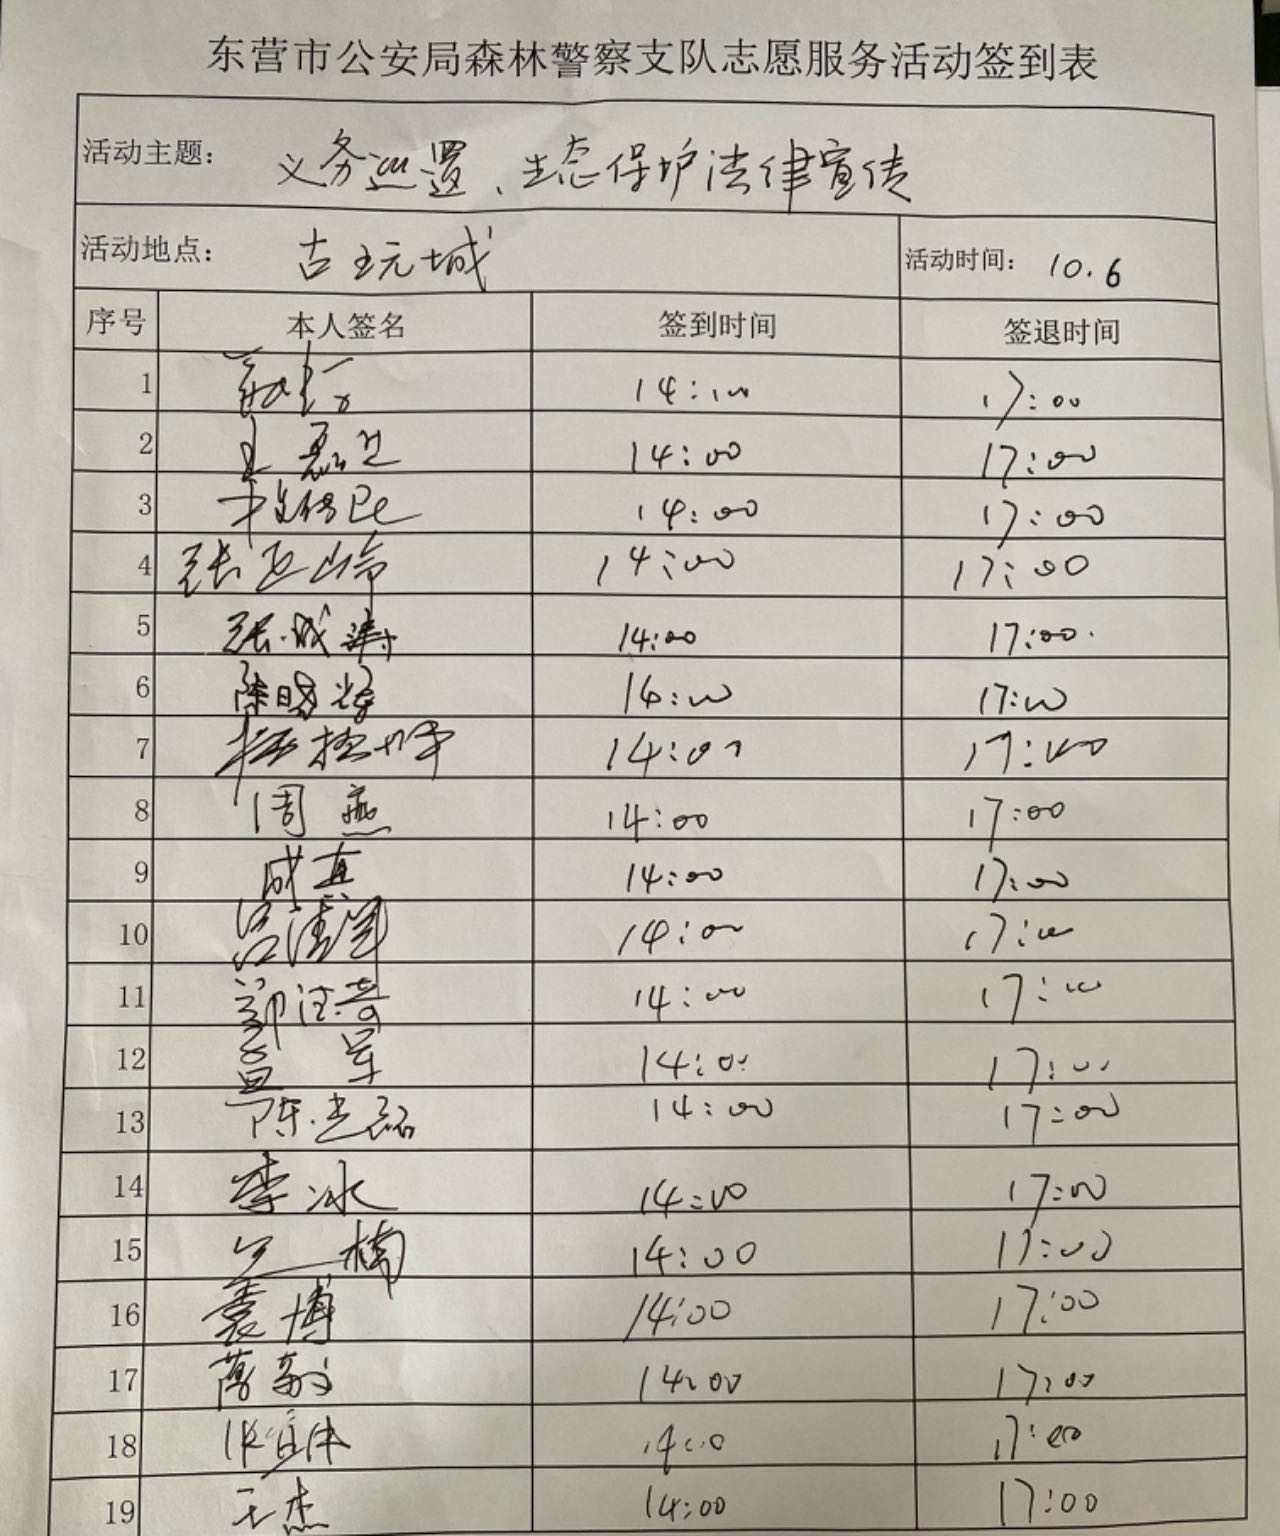 东营市公安局森林警察支队志愿服务活动签到表
活动主题： 义务巡逻、生态保护法律宣传
活动地点： 古玩城 活动时间： 10.6
序号 本人签名 签到时间 签退时间
1 14:00 17:00
2 王磊 14:00 17:00
3 14:00 17:00
4 张亚崎 14:00 17:00
5 张成涛 14:00 17:00
6 陈晓 14:00 17:00
7 14:00 17:00
8 周燕 14:00 17:00
9 成真 14:00 17:00
10 吕 14:00 17:00
11 郭 14:00 17:00
12 14:00 17:00
13 陈志磊 14:00 17:00
14 李冰 14:00 17:00
15 楠 14:00 17:00
16 袁博 14:00 17:00
17 蒋敏 14:00 17:00
18 14:00 17:00
19 王杰 14:00 17:00